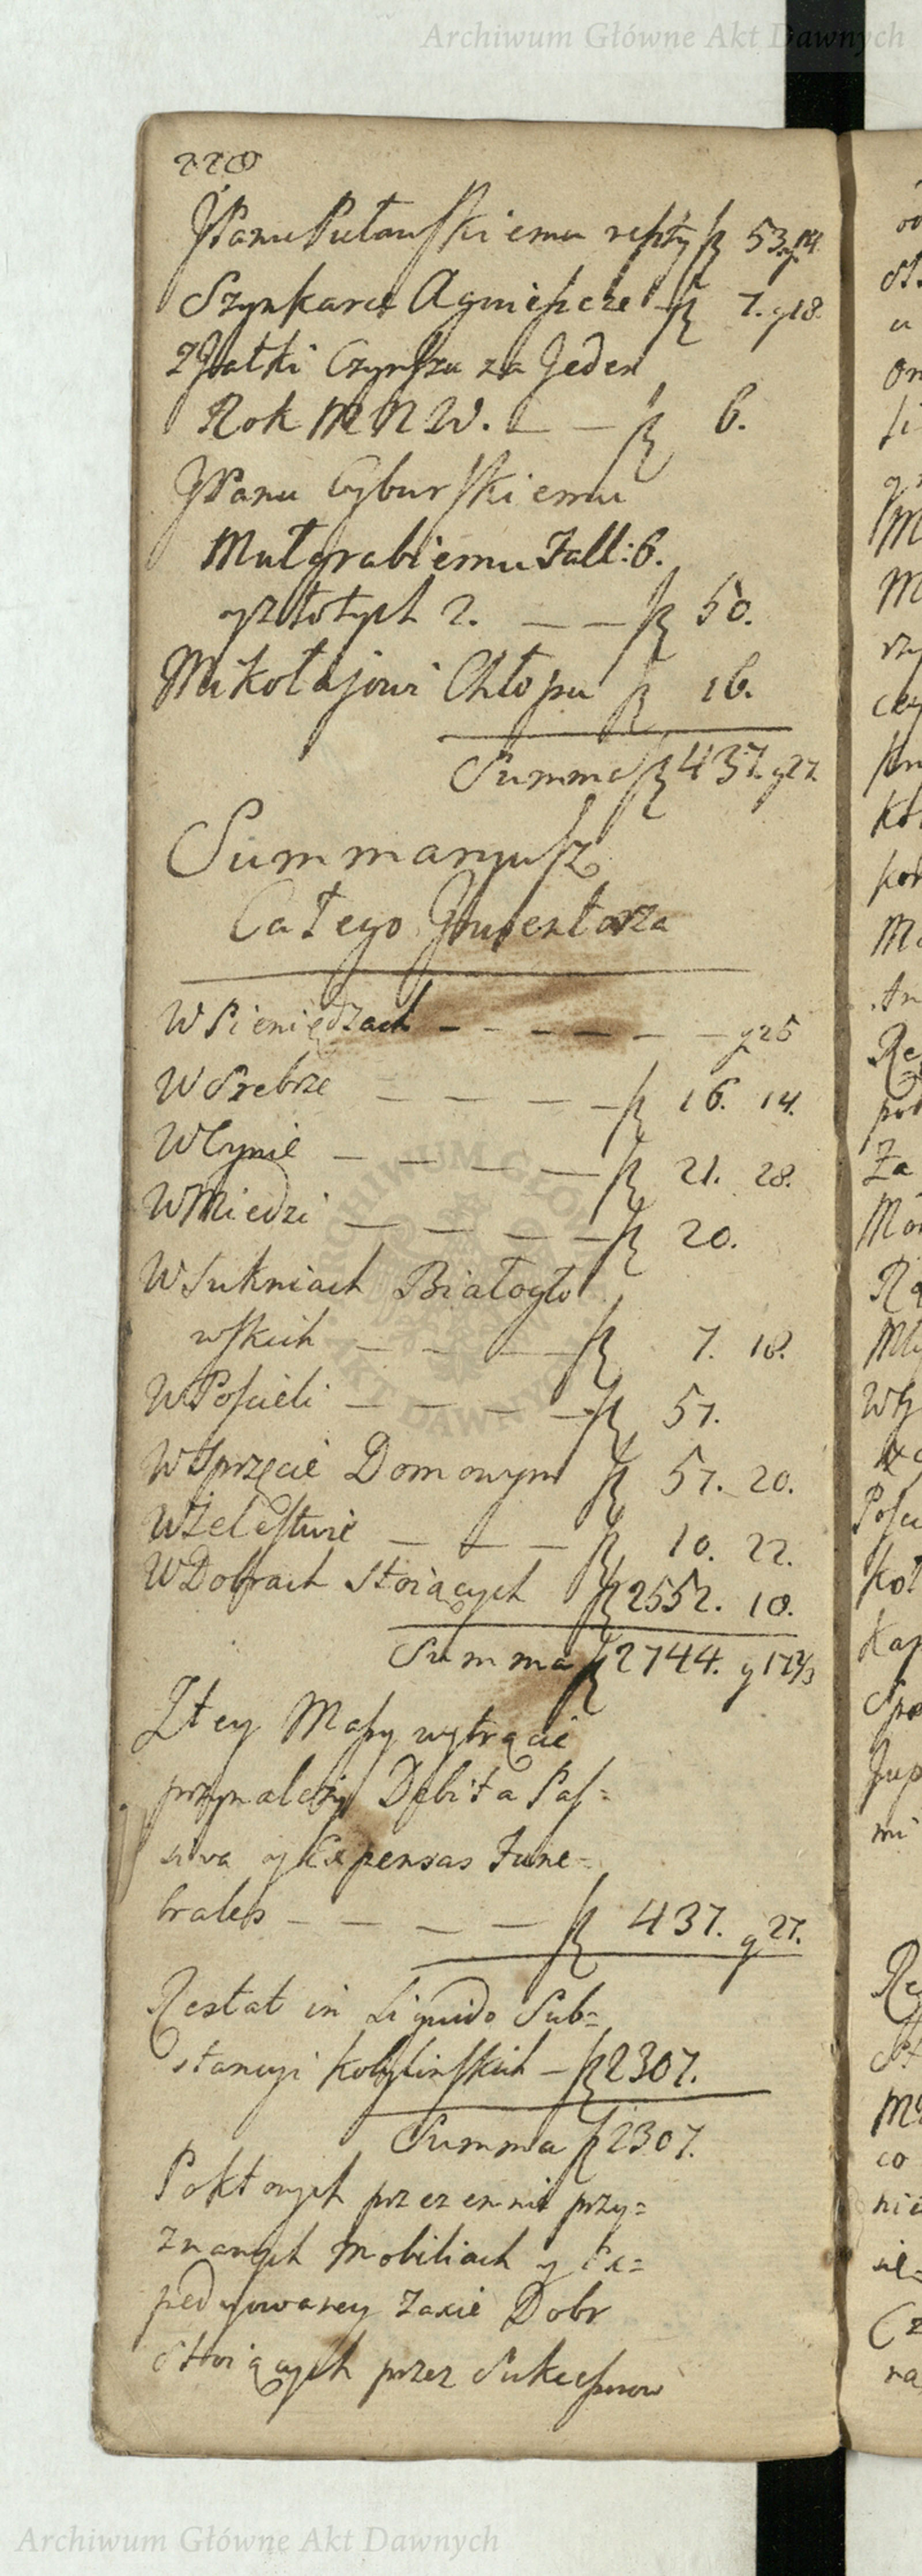 Archiwum Główne Akt Dawnych
228
JPanu Pułauskiemu reszty fl 53. g 14
Szynkarce Agnieszce – fl 7. g 18.
Z Jatki Czynszu za Jeden
Rok M N W. – – fl 6.
JPanu Cyburskiemu
Mutgrabiemu Tall: 6.
y złotych 2. – – fl 50.
Mikołajowi Chłopu fl 16.
Summa fl 437. g 27.
Summaryusz
Całego Jnwentarza
W Pieniędzach – – – – – – g 25
W Srebrze – – – – fl 16. 14.
W Cynie – – – – fl 21. 28.
W Miedzi – – – – fl 20.
W Sukniach Białogło
wskich – – – – fl 7. 18.
W Poscieli – – – – fl 57.
W Sprzęcie Domowym fl 57. 20.
W Żelestwie – – – fl 10. 22.
W Dobrach Stoiących fl 2552. 10.
Summa fl 2744. g 17 2/3
Z tey Massy wytrącic
przynależy Debita Pas=
siva y Expensas Fune=
brales – – – – fl 437. g 27.
Restat in Liquido Sub=
stancyi Kobylinskich – fl 2307.
Summa fl 2307.
Po ktorych przezemnie przy=
znanych Mobiliach y Ex=
pedyowaney Taxie Dobr
Stoiących przez Sukcessorow
Archiwum Główne Akt Dawnych